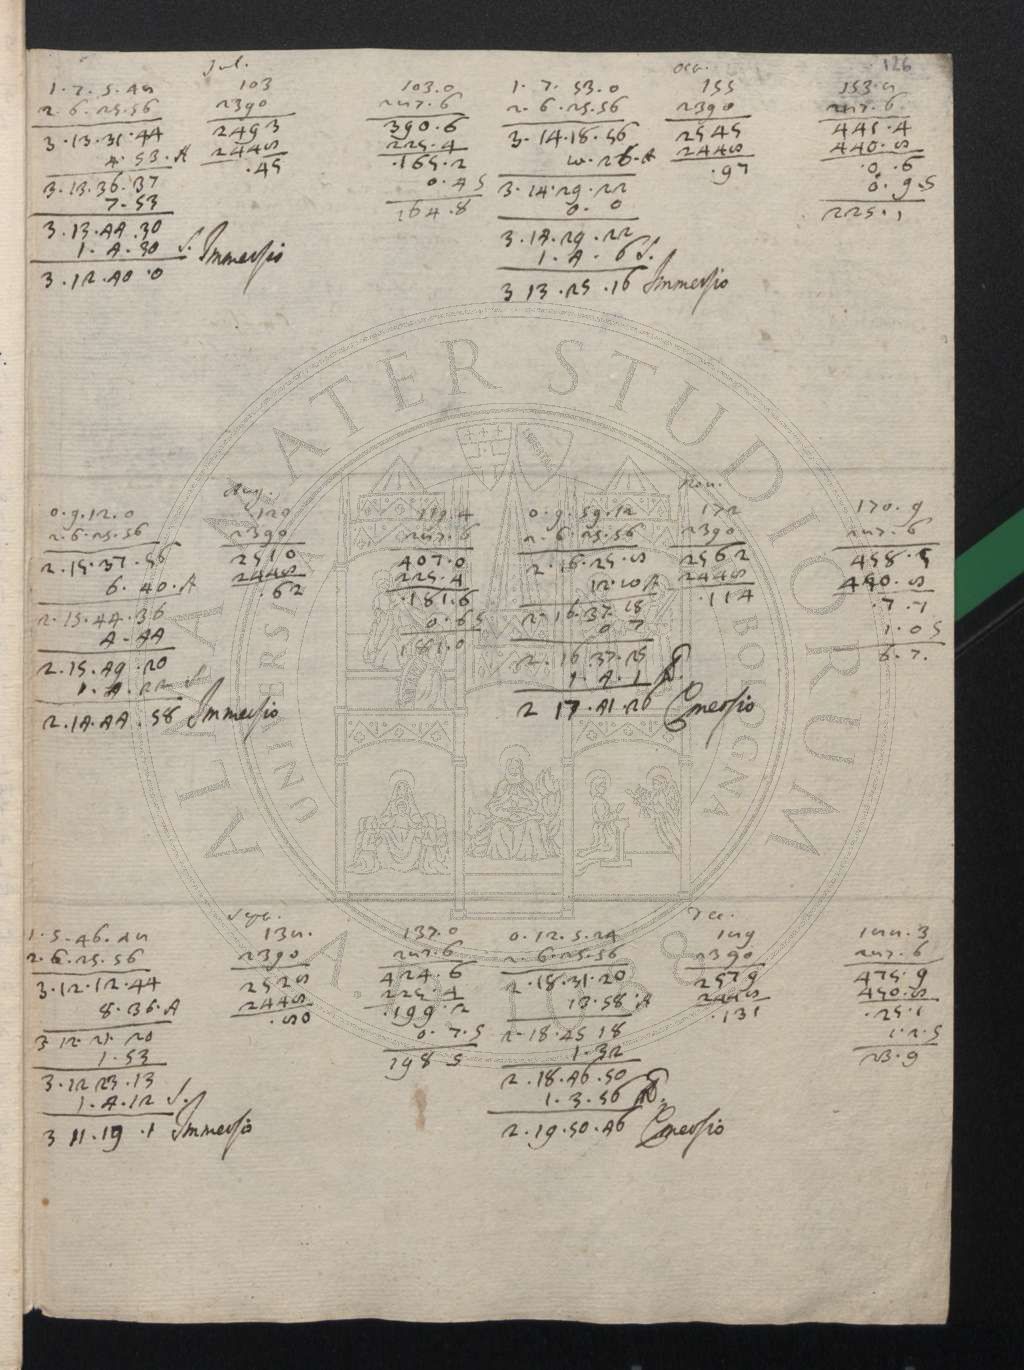 126
Jul.
1.7.5.48
2.6.25.56
3.13.31.44
4.53.A
3.13.36.37
7.53
3.13.44.30
1.4.30 S. Immersio
3.12.40.0
103
2390
2493
2448
.45
103.0
287.6
390.6
225.4
.165.2
0.45
164.8
Oct.
1.7.53.0
2.6.25.56
3.14.18.56
10.26.A
3.14.29.22
0.0
3.14.29.22
1.4.6 S.
3 13.25.16 Immersio
155
2390
2545
2448
.97
153.8
287.6
441.4
440.8
.0.6
0.9.5
225.1
Aug.
0.9.12.0
2.6.25.56
2.15.37.56
6.40.A
2.15.44.36
4.44
2.15.49.20
1.4.22 S
2.14.44.58 Immersio
120
2390
2510
2448
.62
119.4
287.6
407.0
225.4
.181.6
0.65
181.0
Nou.
0.9.59.12
2.6.25.56
2.16.25.8
12.10 A
2.16.37.18
0 7
2.16.37.25
1.4.1
2 17.41.26 Emersio
172
2390
2562
2448
.114
170.9
287.6
458.5
450.8
.7.7
1.05
6.7.
Sept.
1.5.46.48
2.6.25.56
3.12.12.44
8.36.A
3 12.21 20
1.53
3.12 23.13
1.4.12 S.
3 11.19.1 Immersio
138.
2390
2528
2448
.80
137.0
287.6
424.6
225.4
.199.2
0.7.5
198 5
Dec.
0.12.5.24
2.6.25.56
2.18.31.20
13.58.A
2.18.45 18
1.32
2.18.46.50
1.3.56
2.19.50.46 Emersio
189
2390
2579
2448
.131
188.3
287.6
475.9
450.8
.25.1
1.2.5
23.9
ALMA MATER STUDIORUM
A.D. 1088
UNIVERSITÀ DI BOLOGNA